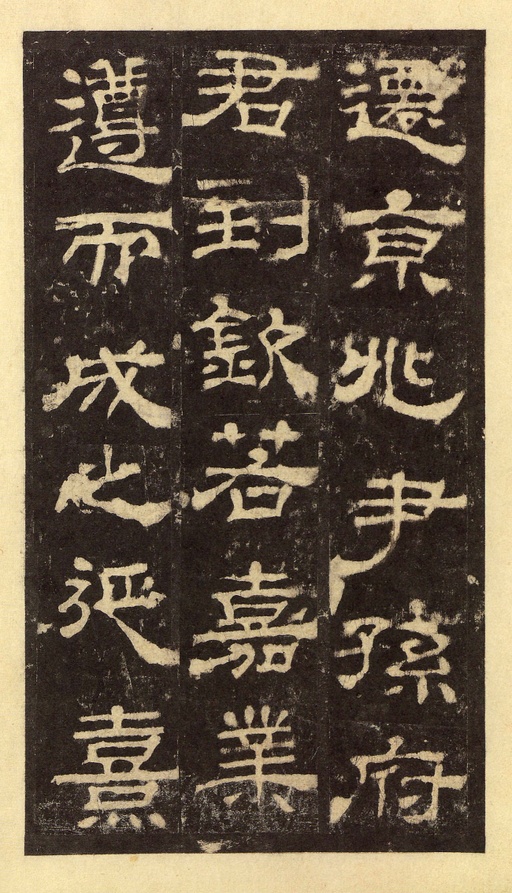 遷亰兆尹孫府
君到欽若嘉業
遵而成之延熹